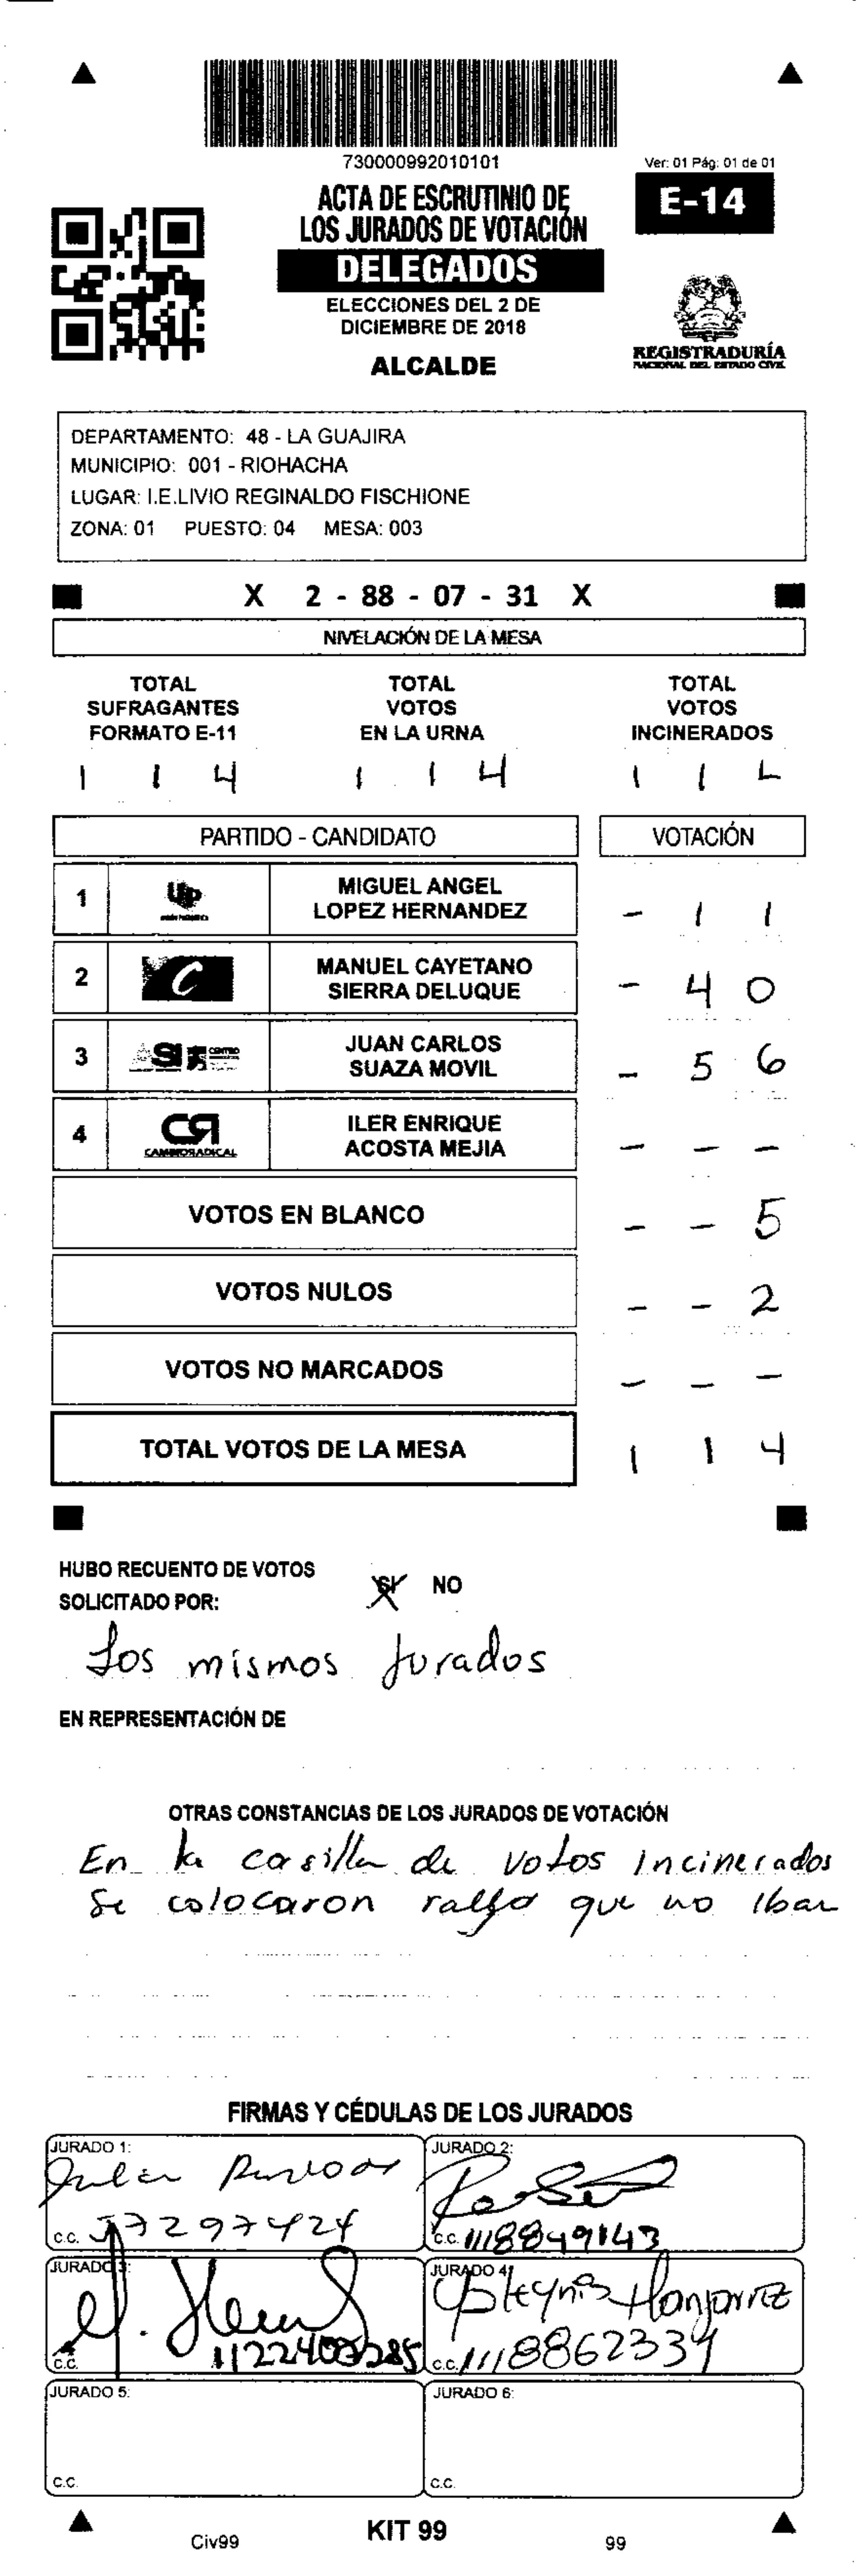 730000992010101
Ver: 01 Pág: 01 de 01
ACTA DE ESCRUTINIO DE
LOS JURADOS DE VOTACIÓN
E-14
DELEGADOS
ELECCIONES DEL 2 DE
DICIEMBRE DE 2018
ALCALDE
REGISTRADURÍA
NACIONAL DEL ESTADO CIVIL
DEPARTAMENTO: 48 - LA GUAJIRA
MUNICIPIO: 001 - RIOHACHA
LUGAR: I.E.LIVIO REGINALDO FISCHIONE
ZONA: 01 PUESTO: 04 MESA: 003
X 2 - 88 - 07 - 31 X
NIVELACIÓN DE LA MESA
TOTAL SUFRAGANTES FORMATO E-11
TOTAL VOTOS EN LA URNA
TOTAL VOTOS INCINERADOS
1 1 4 1 1 4 1 1
PARTIDO - CANDIDATO VOTACIÓN
1 up MIGUEL ANGEL
LOPEZ HERNANDEZ - 1 1
2 C MANUEL CAYETANO
SIERRA DELUQUE - 4 0
3 ASI CENTRO JUAN CARLOS
SUAZA MOVIL - 5 6
4 CR CAMBIO RADICAL ILER ENRIQUE
ACOSTA MEJIA - - -
VOTOS EN BLANCO - - 5
VOTOS NULOS - - 2
VOTOS NO MARCADOS - - -
TOTAL VOTOS DE LA MESA 1 1 4
HUBO RECUENTO DE VOTOS
SI NO
SOLICITADO POR:
Los mismos Jurados
EN REPRESENTACIÓN DE
OTRAS CONSTANCIAS DE LOS JURADOS DE VOTACIÓN
En la casilla de votos Incinerados
Se colocaron que no Iban
FIRMAS Y CÉDULAS DE LOS JURADOS
JURADO 1: JURADO 2:
c.c. c.c. 1118849143
JURADO 3: JURADO 4:
c.c. c.c. 1118862334
JURADO 5: JURADO 6:
c.c. c.c.
Civ99 KIT 99 99